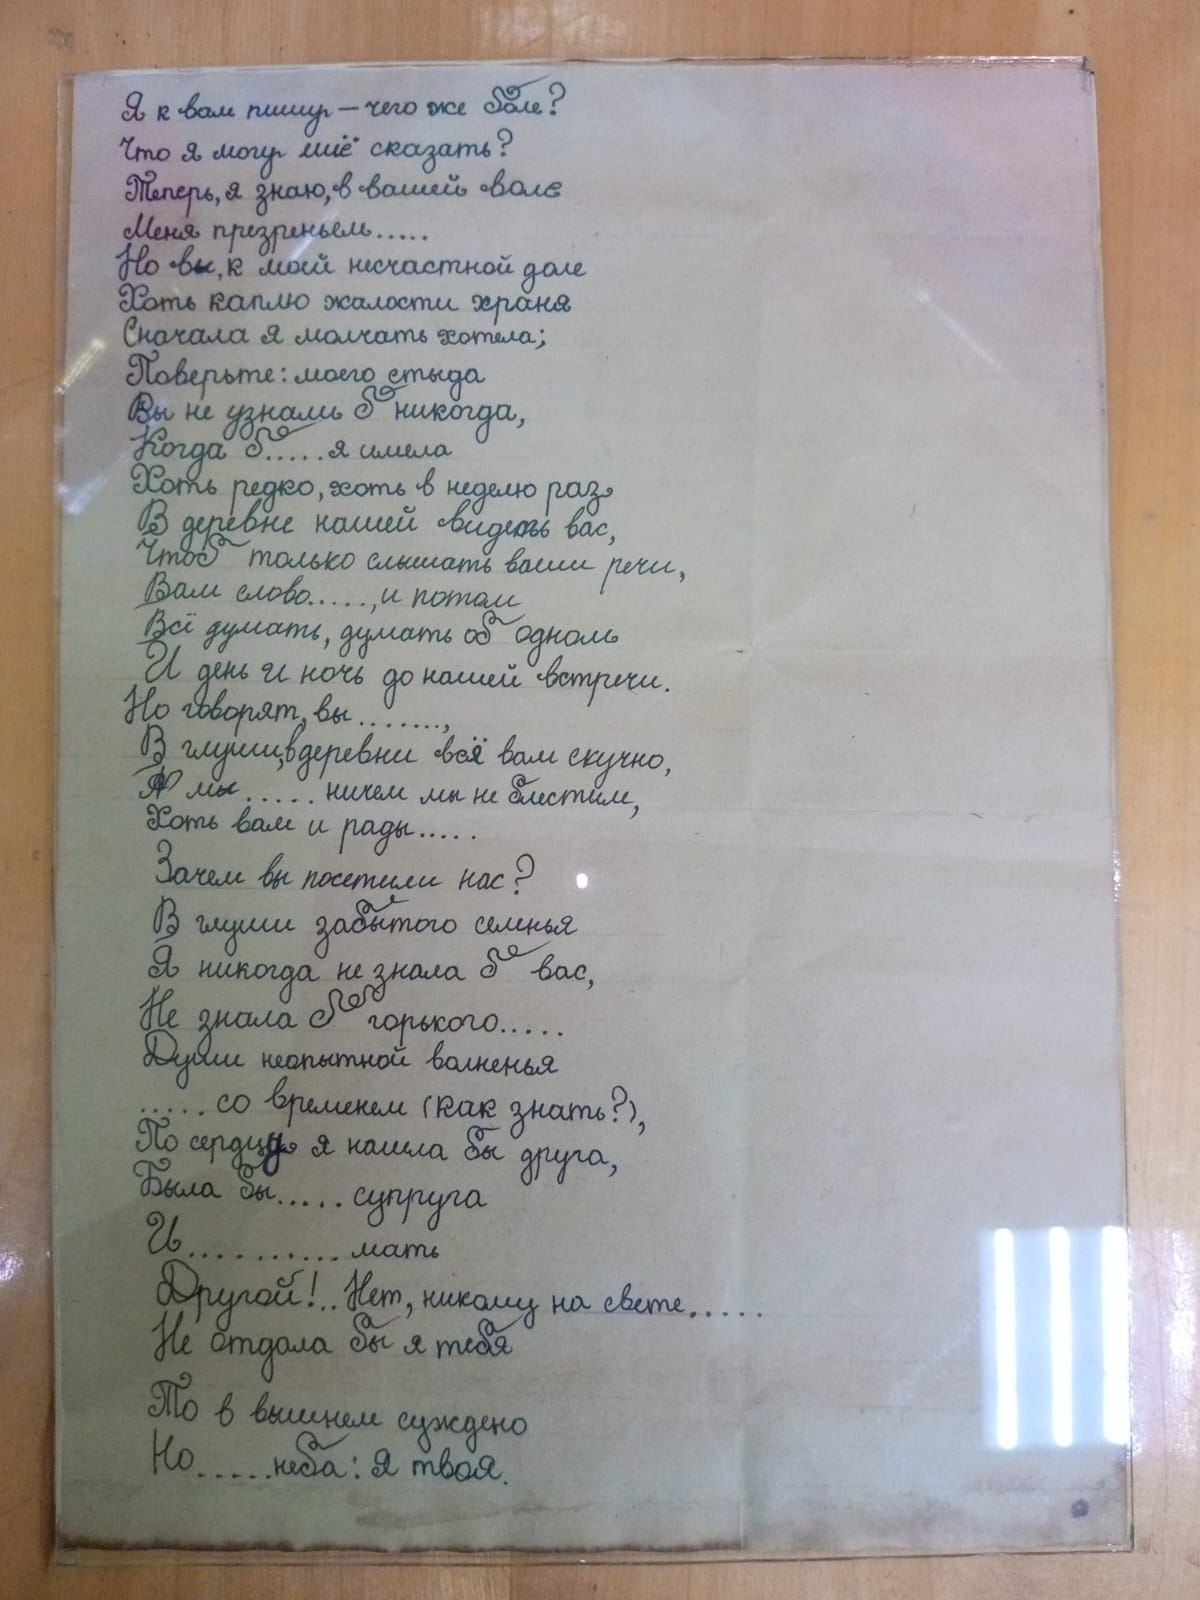 Я к вам пишу – чего же боле?
Что я могу ещё сказать?
Теперь, я знаю, в вашей воле
Меня презреньем.....
Но вы, к моей несчастной доле
Хоть каплю жалости храня
Сначала я молчать хотела;
Поверьте: моего стыда
Вы не узнали б никогда,
Когда б.....я имела
Хоть редко, хоть в неделю раз
В деревне нашей видеть вас,
Чтоб только слышать ваши речи,
Вам слово....., и потом
Всё думать, думать об одном
И день и ночь до нашей встречи.
Но говорят, вы.......,
В глуши, в деревни всё вам скучно,
А мы..... ничем мы не блестим,
Хоть вам и рады.....
Зачем вы посетили нас?
В глуши забытого селенья
Я никогда не знала б вас,
Не знала б горького.....
Души неопытной волненья
.....со временем (как знать?),
По сердцу я нашла бы друга,
Была бы.....супруга
И..........мать
Другой!..Нет, никому на свете.....
Не отдала бы я тебя
То в вышнем суждено
Но.....неба: Я твоя.